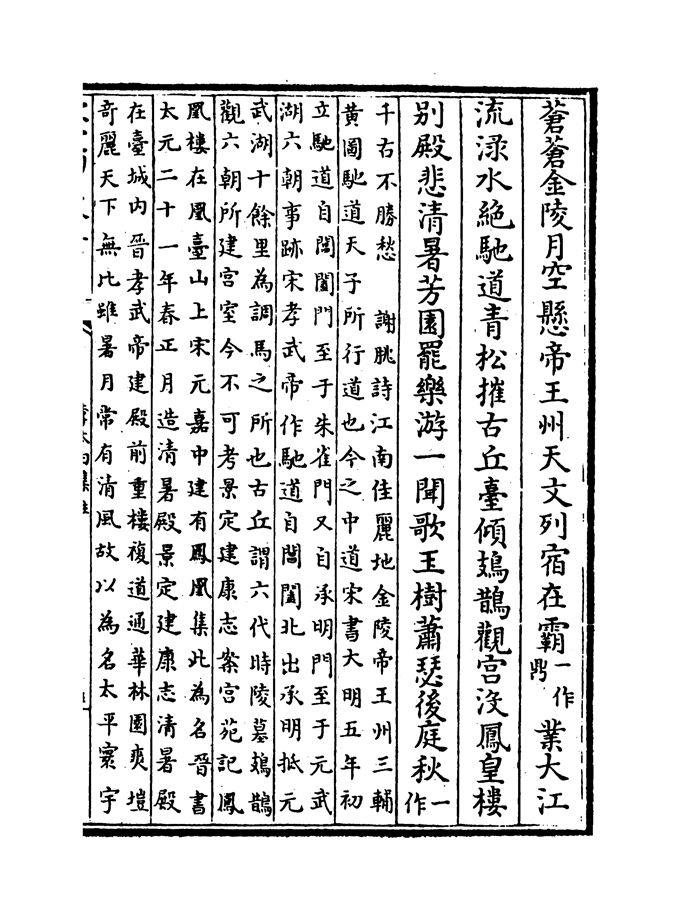 蒼蒼金陵月空懸帝王州天文列宿在霸一作鼎業大江
流渌水絶馳道青松摧古丘臺傾鳷鵲觀宮没鳳皇樓
别殿悲清暑芳園罷樂游一聞歌玉樹蕭瑟後庭秋一作
千古不勝愁　謝朓詩江南佳麗地金陵帝王州三輔
黄圖馳道天子所行道也今之中道宋書大明五年初
立馳道自閶闔門至于朱雀門又自承明門至于元武
湖六朝事跡宋孝武帝作馳道自閶闔北出承明抵元
武湖十餘里為調馬之所也古丘謂六代時陵墓鳷鵲
觀六朝所建宮室今不可考景定建康志案宮苑記鳳
凰樓在凰臺山上宋元嘉中建有鳳凰集此為名晉書
太元二十一年春正月造清暑殿景定建康志清暑殿
在臺城内晉孝武帝建殿前重樓複道通華林園爽塏
奇麗天下無比雖暑月常有清風故以為名太平寰宇